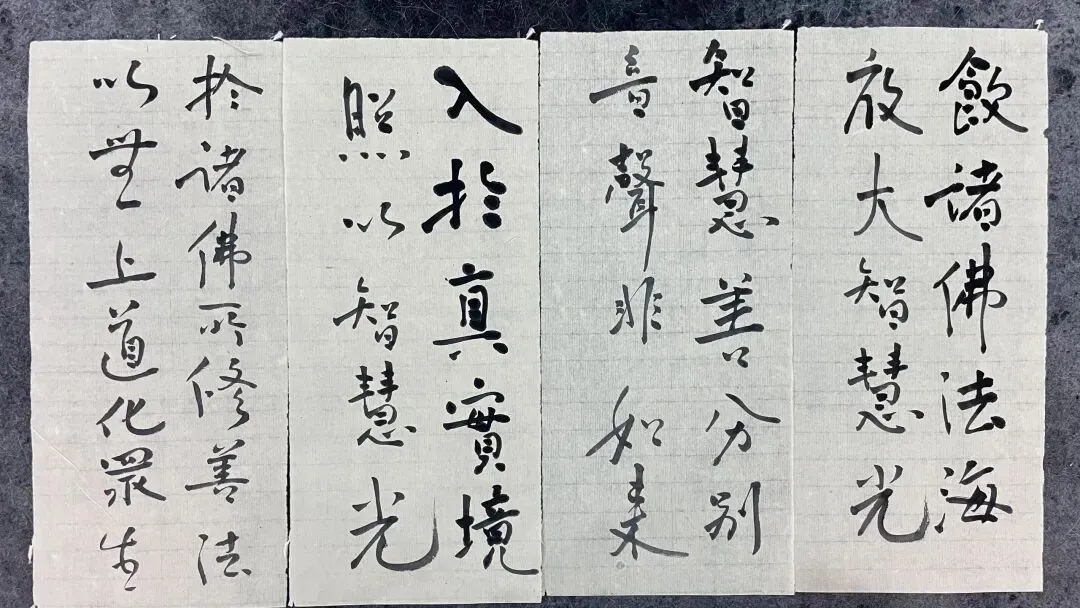 飲諸佛法海
放大智慧光
智慧善分別
音聲非如來
入於真實境
照以智慧光
於諸佛所修善法
以無上道化眾生